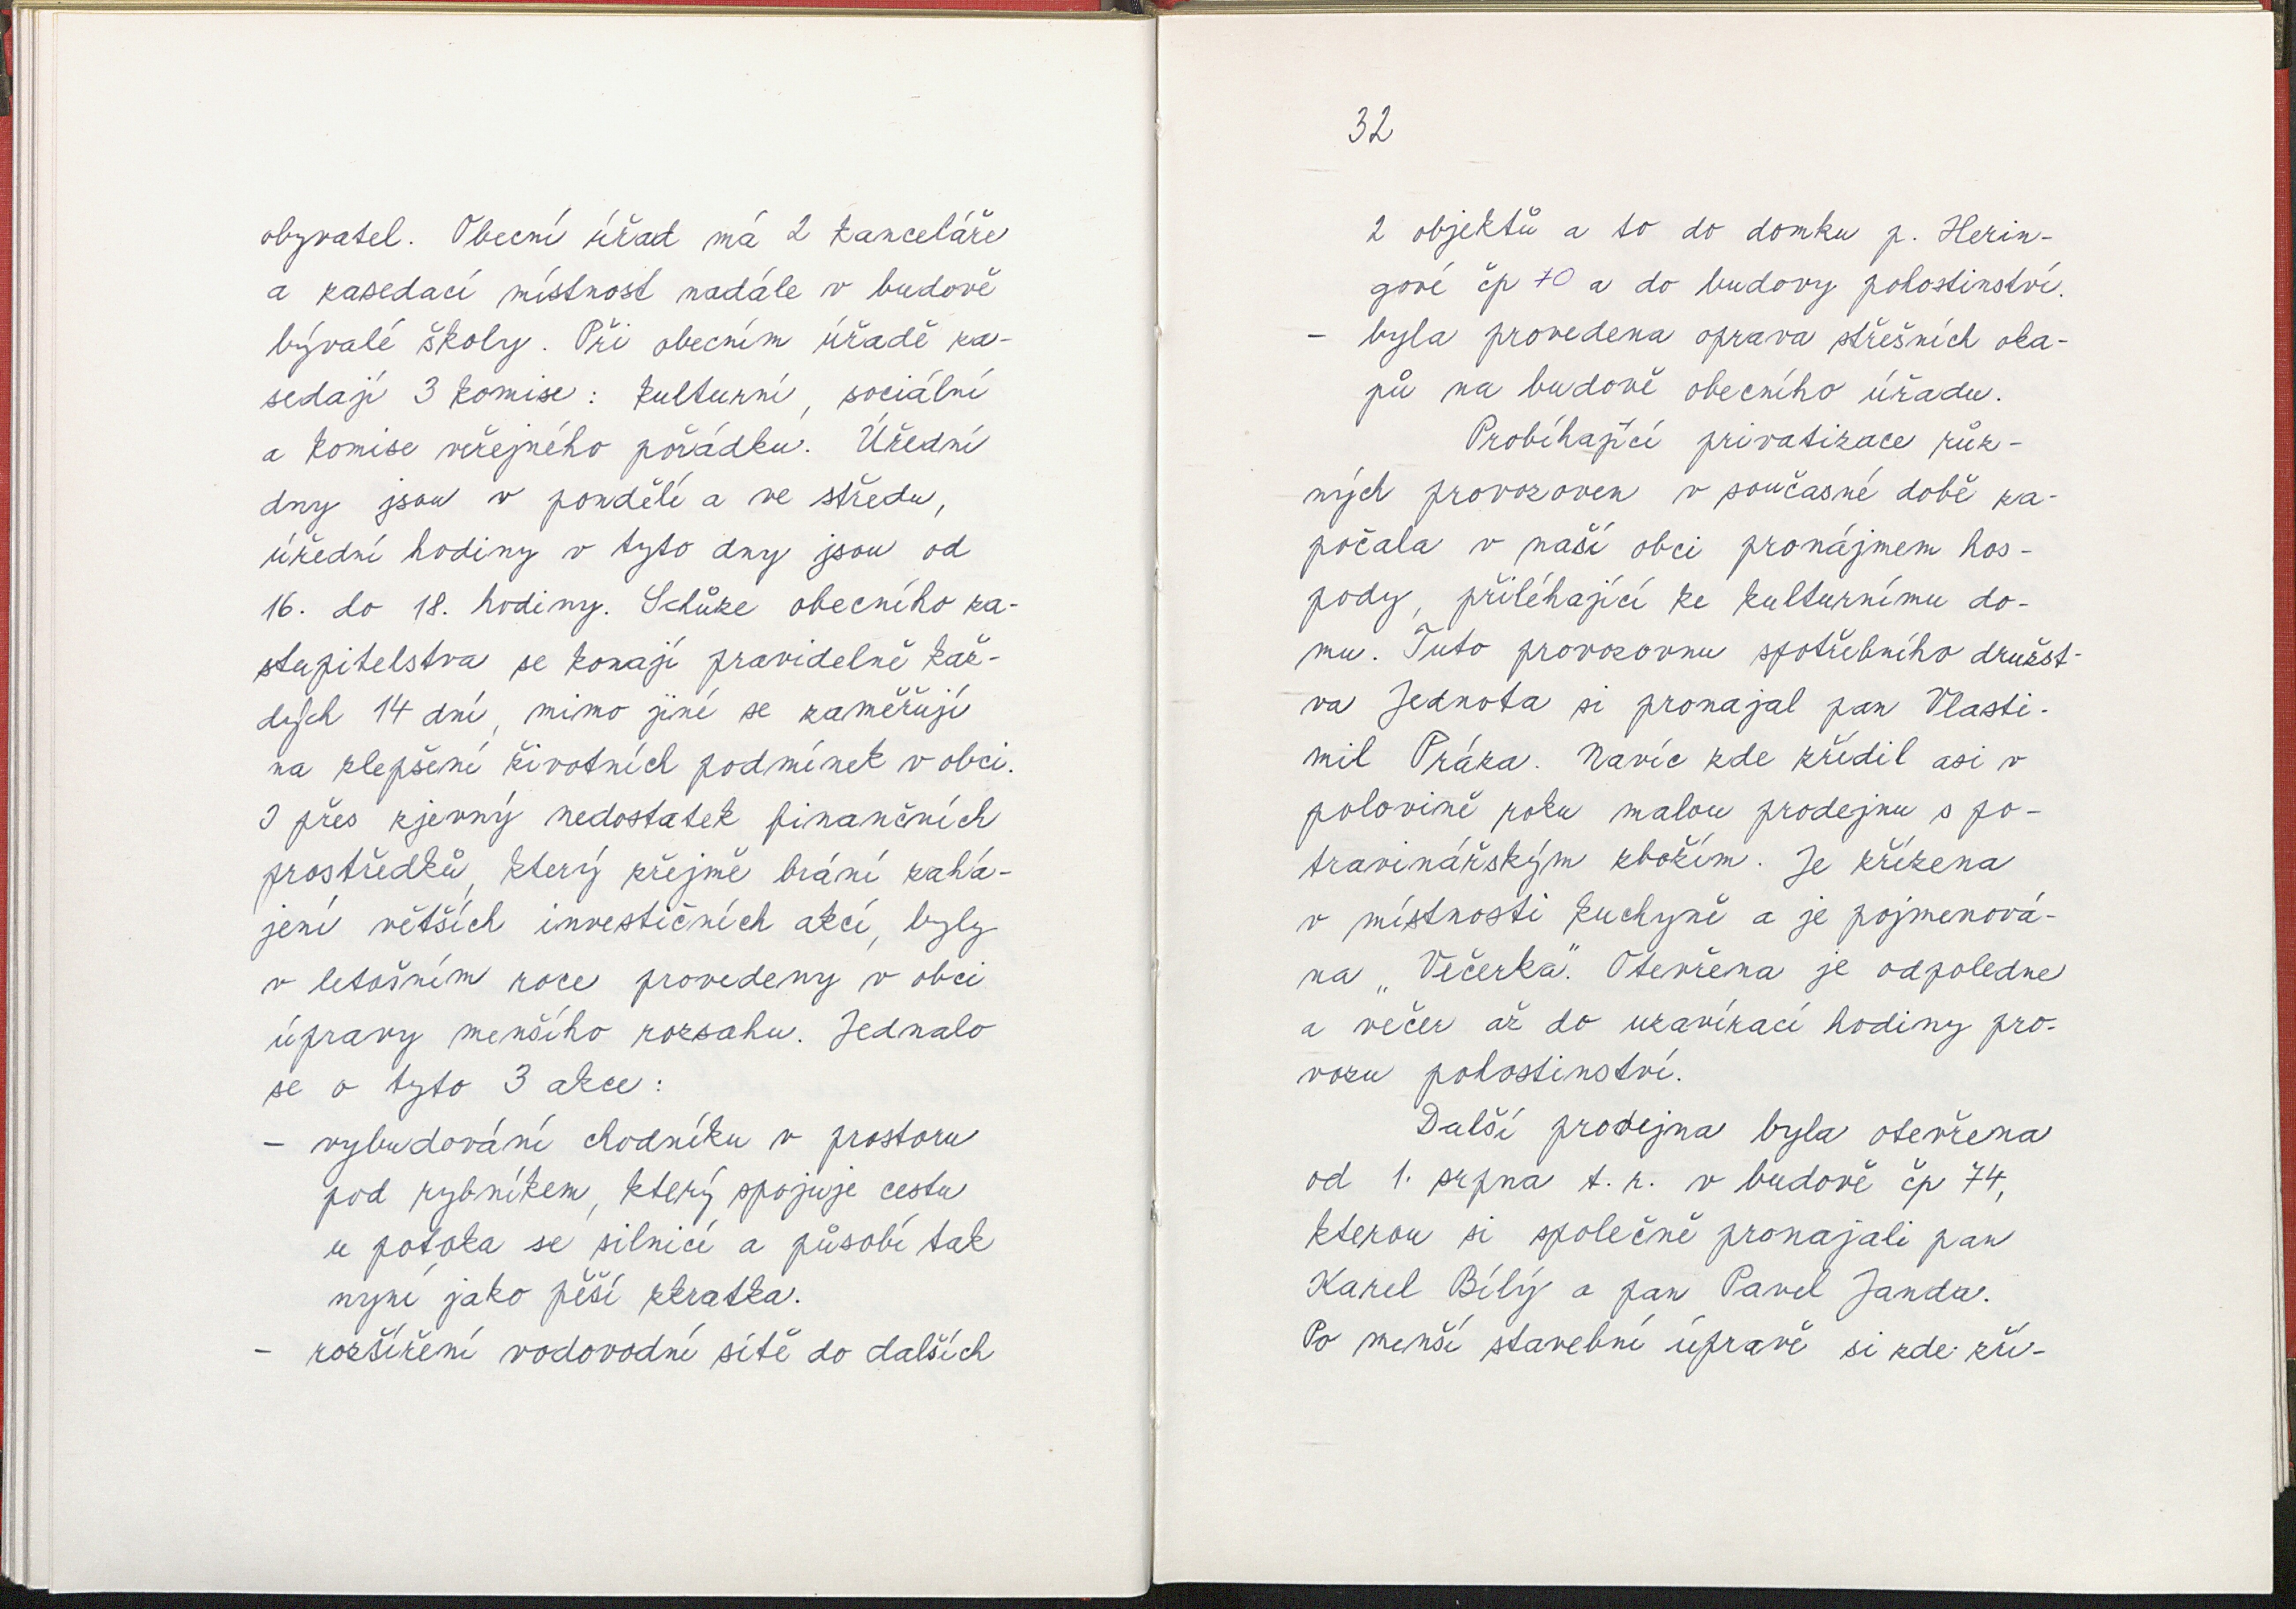 obyvatel. Obecní úřad má 2 kanceláře
a zasedací místnost nadále v budově
bývalé školy. Při obecním úřadě za-
sedají 3 komise: kulturní, sociální
a komise veřejného pořádku. Úřední
dny jsou v pondělí a ve středu,
úřední hodiny v tyto dny jsou od
16. do 18. hodiny. Schůze obecního za-
stupitelstva se konají pravidelně kaž-
dých 14 dní, mimo jiné se zaměřují
na zlepšení životních podmínek v obci.
I přes zjevný nedostatek finančních
prostředků, který zřejmě brání zahá-
jení větších investičních akcí, byly
v letošním roce provedeny v obci
úpravy menšího rozsahu. Jednalo
se o tyto 3 akce:
- vybudování chodníku v prostoru
pod rybníkem, který spojuje cestu
u potoka se silnicí a působí tak
nyní jako pěší zkratka.
- rozšíření vodovodní sítě do dalších
32
2 objektů a to do domku p. Herin-
gové čp 70 a do budovy pohostinství.
- byla provedena oprava střešních oka-
pů na budově obecního úřadu.
Probíhající privatizace růz-
ných provozoven v současné době za-
počala v naší obci pronájmem hos-
pody, přiléhající ke kulturnímu do-
mu. Tuto provozovnu spotřebního družst-
va Jednota si pronajal pan Vlasti-
mil Práza. Navíc zde zřídil asi v
polovině roku malou prodejnu s po-
travinářským zbožím. Je zřízena
v místnosti kuchyně a je pojmenová-
na „Večerka". Otevřena je odpoledne
a večer až do uzavírací hodiny pro-
vozu pohostinství.
Další prodejna byla otevřena
od 1. srpna t. r. v budově čp 74,
kterou si společně pronajali pan
Karel Bílý a pan Pavel Janda.
Po menší stavební úpravě si zde zří-